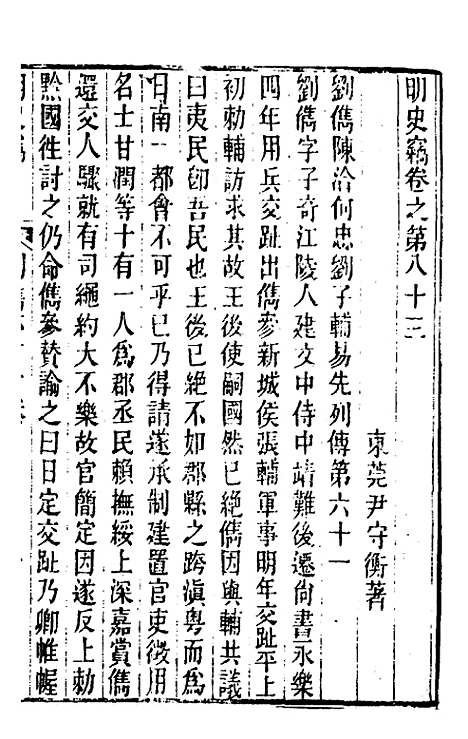 明史竊卷之第八十三
東莞尹守衡著
劉儁陳洽何忠劉子輔易先列傳第六十一
劉儁字子奇江陵人建文中侍中靖難後遷尙書永樂
四年用兵交趾出儁參新城侯張輔軍事明年交趾平上
初勅輔訪求其故王後使嗣國然已絶儁因與輔共議
曰夷民卽吾民也王後已絶不如郡縣之跨滇粤而爲
日南一都會不可乎已乃得請遂承制建置官吏徵用
名士甘潤等十有一人爲郡丞民賴撫綏上深嘉賞儁
還交人驟就有司繩約大不樂故官簡定因遂反上勅
黔國徃討之仍命儁參贊諭之曰日定交趾乃卿帷幄